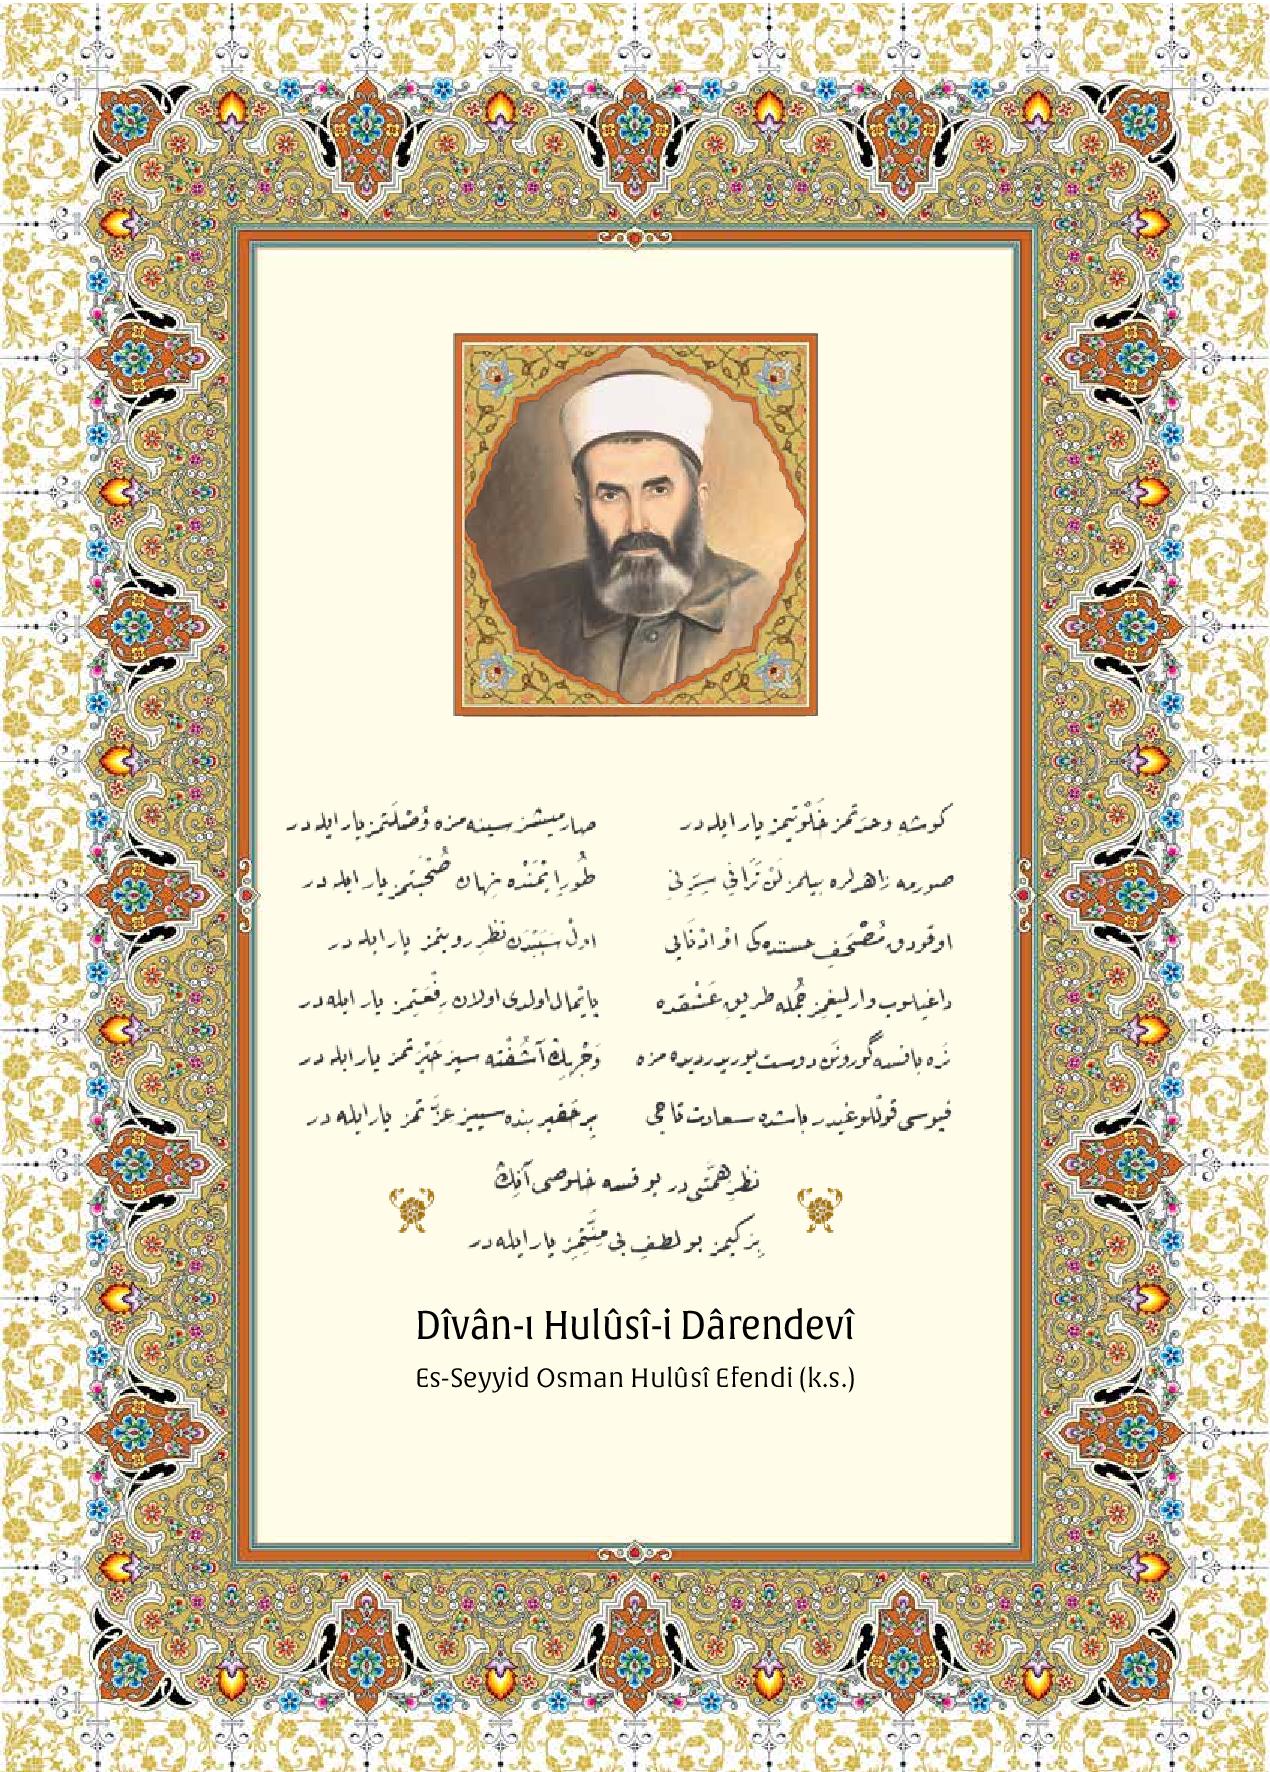 كوشه وحدتمز خَلْوتيمز يار ايله در
صارميشز سينه مزه وُصْلَتمز يار ايله در
صورمه زاهدلره بيلمز لَنْ تَرَانِي سِرّ نِي
طُورِ ايْمَنْده نهان صُحْبَتمز يار ايله در
اوقودق مُصْحَفِ حسنده كى اَوْ اَدْنَايى
اولْ سَبَبْدَن نظرِ رويتمز يار ايله در
داغيلوب وارليغمز جُمله طريقِ عَشْقده
پايْمال اولدى اولان رِفْعَتمز يار ايله در
نَره باقسه گورونن دوست يوزيدر ديده مزه
وَجْهِنِڭ آشُفْته سيز حَيْرَتمز يار ايله در
قپوسى قوللوغيدر باشده سعادت تاجى
بِر حَقير بنده سييز عزّتمز يار ايله در
نظرِ همّتى در بو قسه خلوصى آنِڭ
بِز كيمز بو لطفِ بى مِنّتمِز يار ايله در
Dîvân-ı Hulûsî-i Dârendevî
Es-Seyyid Osman Hulûsî Efendi (k.s.)